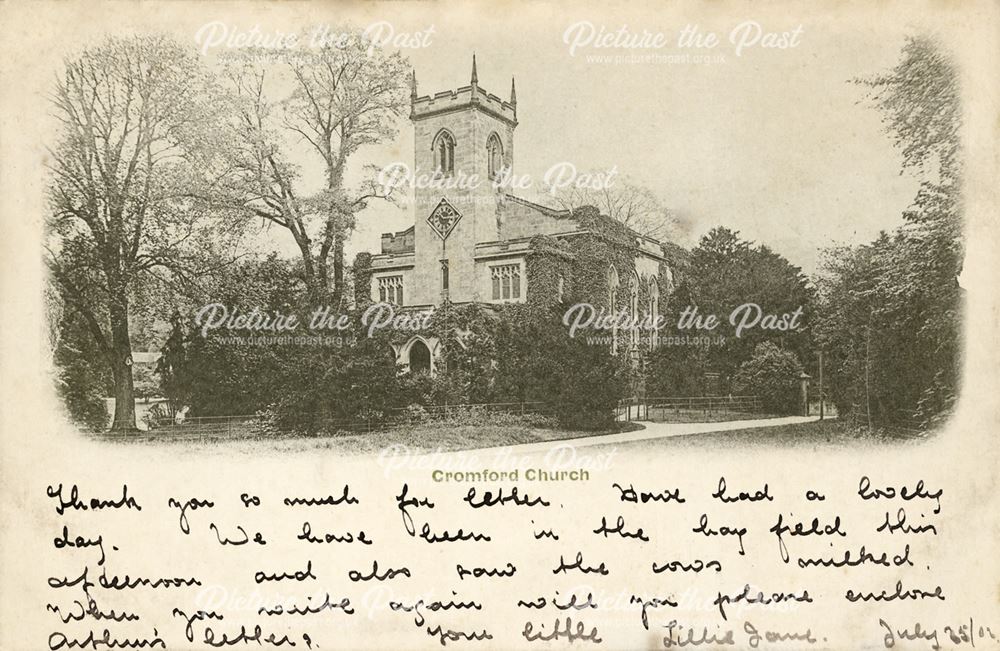 Picture the Past Picture the Past
www.picturethepast.org.uk www.picturethepast.org.uk
Picture the Past Picture the Past
www.picturethepast.org.uk www.picturethepast.org.uk
Picture the Past Picture the Past
www.picturethepast.org.uk www.picturethepast.org.uk
Cromford Church
Thank you so much for letter. Have had a lovely
day. We have been in the hay field this
afternoon and also saw the cows milked.
When you write again will you please enclose
Arthur's letter? Your little Lillie Jane. July 25/02